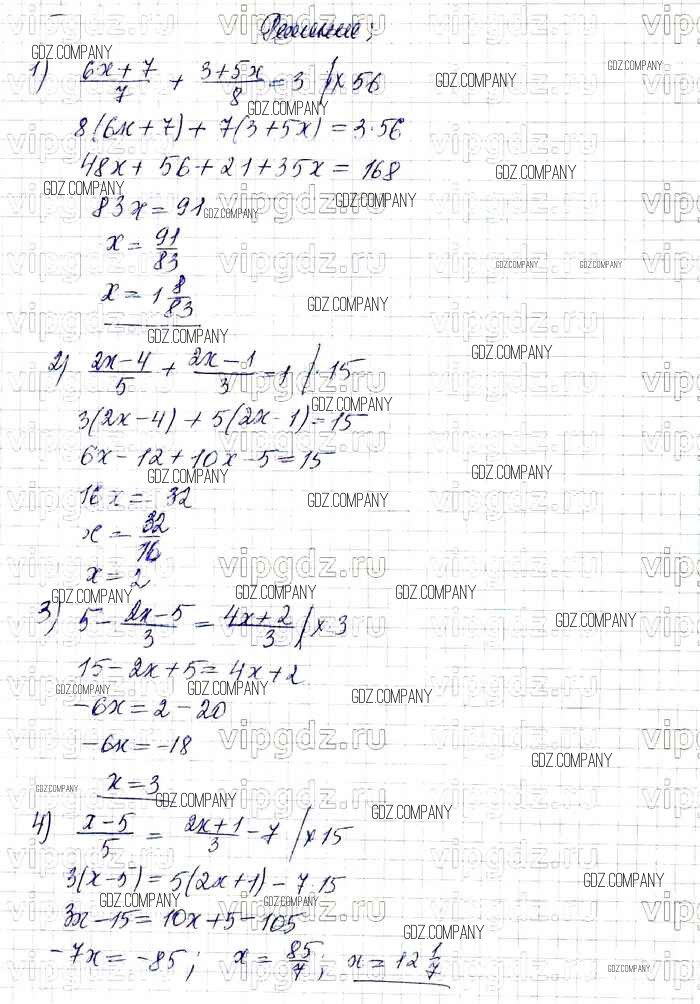 Решение;
1) (6x+7)/7 + (3+5x)/8 = 3 /×56
8(6x+7)+7(3+5x)=3·56
48x+56+21+35x=168
83x=91
x=91/83
x=1 8/83
2) (2x-4)/5 + (2x-1)/3 = 1 /·15
3(2x-4)+5(2x-1)=15
6x-12+10x-5=15
16x=32
x=32/16
x=2
3) 5-(2x-5)/3=(4x+2)/3 /×3
15-2x+5=4x+2
-6x=2-20
-6x=-18
x=3
4) (x-5)/5=(2x+1)/3-7 /×15
3(x-5)=5(2x+1)-7·15
3x-15=10x+5-105
-7x=-85; x=85/7; x=12 1/7
GDZ.COMPANY
vipgdz.ru